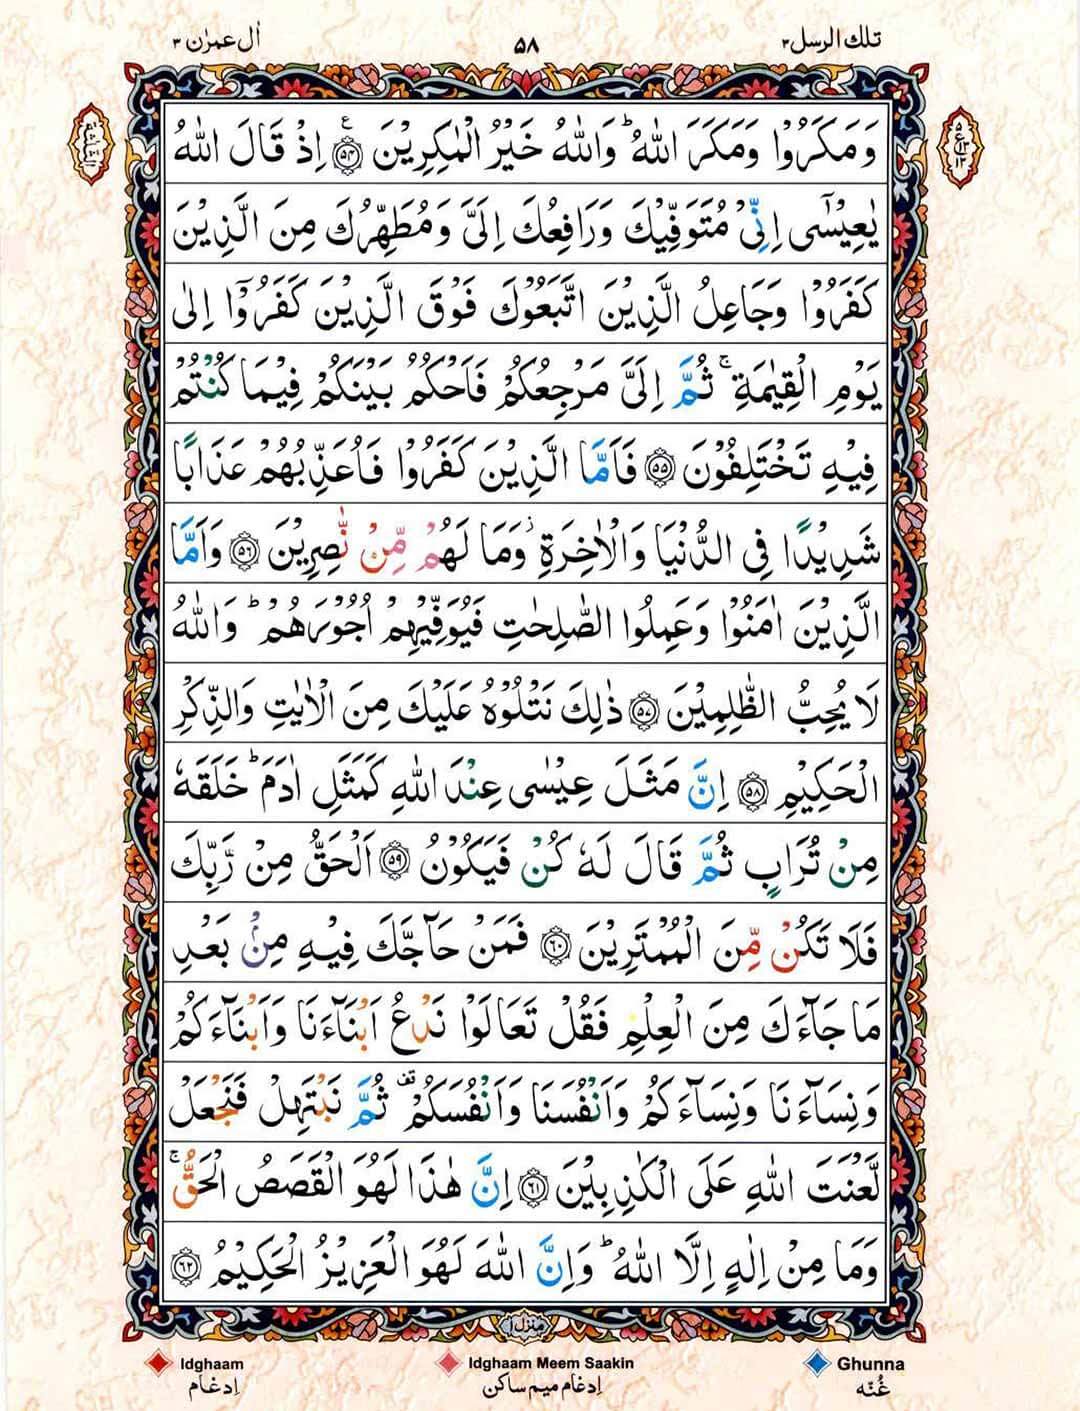 تلك الرسل ٣
٥٨
اٰل عمرٰن ٣
وَمَكَرُوْا وَمَكَرَ اللّٰهُ ؕ وَاللّٰهُ خَيْرُ الْمٰكِرِيْنَ ﴿۵۴﴾ ع اِذْ قَالَ اللّٰهُ
يٰعِيْسٰۤى اِنِّىْ مُتَوَفِّيْكَ وَرَافِعُكَ اِلَىَّ وَمُطَهِّرُكَ مِنَ الَّذِيْنَ
كَفَرُوْا وَجَاعِلُ الَّذِيْنَ اتَّبَعُوْكَ فَوْقَ الَّذِيْنَ كَفَرُوْۤا اِلٰى
يَوْمِ الْقِيٰمَةِ ۚ ثُمَّ اِلَىَّ مَرْجِعُكُمْ فَاَحْكُمُ بَيْنَكُمْ فِيْمَا كُنْتُمْ
فِيْهِ تَخْتَلِفُوْنَ ﴿۵۵﴾ فَاَمَّا الَّذِيْنَ كَفَرُوْا فَاُعَذِّبُهُمْ عَذَابًا
شَدِيْدًا فِى الدُّنْيَا وَالْاٰخِرَةِ ؗ وَمَا لَهُمْ مِّنْ نّٰصِرِيْنَ ﴿۵۶﴾ وَاَمَّا
الَّذِيْنَ اٰمَنُوْا وَعَمِلُوا الصّٰلِحٰتِ فَيُوَفِّيْهِمْ اُجُوْرَهُمْ ؕ وَاللّٰهُ
لَا يُحِبُّ الظّٰلِمِيْنَ ﴿۵۷﴾ ذٰلِكَ نَتْلُوْهُ عَلَيْكَ مِنَ الْاٰيٰتِ وَالذِّكْرِ
الْحَكِيْمِ ﴿۵۸﴾ اِنَّ مَثَلَ عِيْسٰى عِنْدَ اللّٰهِ كَمَثَلِ اٰدَمَ ؕ خَلَقَهٗ
مِنْ تُرَابٍ ثُمَّ قَالَ لَهٗ كُنْ فَيَكُوْنُ ﴿۵۹﴾ اَلْحَقُّ مِنْ رَّبِّكَ
فَلَا تَكُنْ مِّنَ الْمُمْتَرِيْنَ ﴿۶۰﴾ فَمَنْ حَآجَّكَ فِيْهِ مِنْۢ بَعْدِ
مَا جَآءَكَ مِنَ الْعِلْمِ فَقُلْ تَعَالَوْا نَدْعُ اَبْنَآءَنَا وَاَبْنَآءَكُمْ
وَنِسَآءَنَا وَنِسَآءَكُمْ وَاَنْفُسَنَا وَاَنْفُسَكُمْ ۟ ثُمَّ نَبْتَهِلْ فَنَجْعَلْ
لَّعْنَتَ اللّٰهِ عَلَى الْكٰذِبِيْنَ ﴿۶۱﴾ اِنَّ هٰذَا لَهُوَ الْقَصَصُ الْحَقُّ ۚ
وَمَا مِنْ اِلٰهٍ اِلَّا اللّٰهُ ؕ وَاِنَّ اللّٰهَ لَهُوَ الْعَزِيْزُ الْحَكِيْمُ ﴿۶۲﴾
منزل ١
Idghaam
اِدغام
Idghaam Meem Saakin
اِدغام ميم ساكن
Ghunna
غُنّه